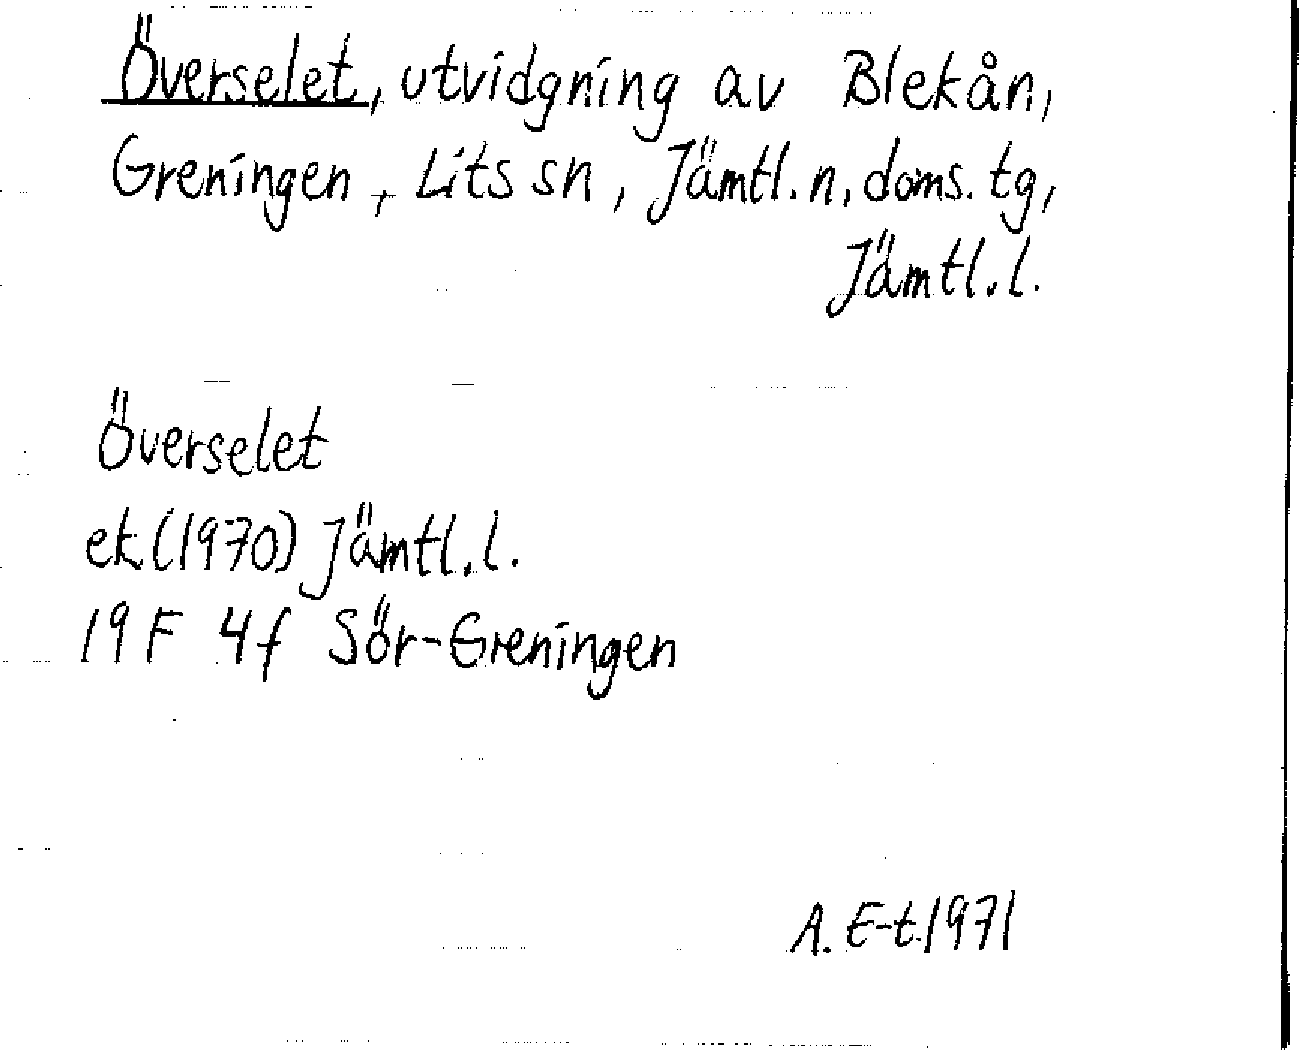 Överselet, utvidgning av Blekån,
Greningen, Lits sn, Jämtl. n. doms. tg,
Jämtl. l.
Överselet
ek (1970) Jämtl. l.
19 F 4f Sör-Greningen
A. E-t 1971